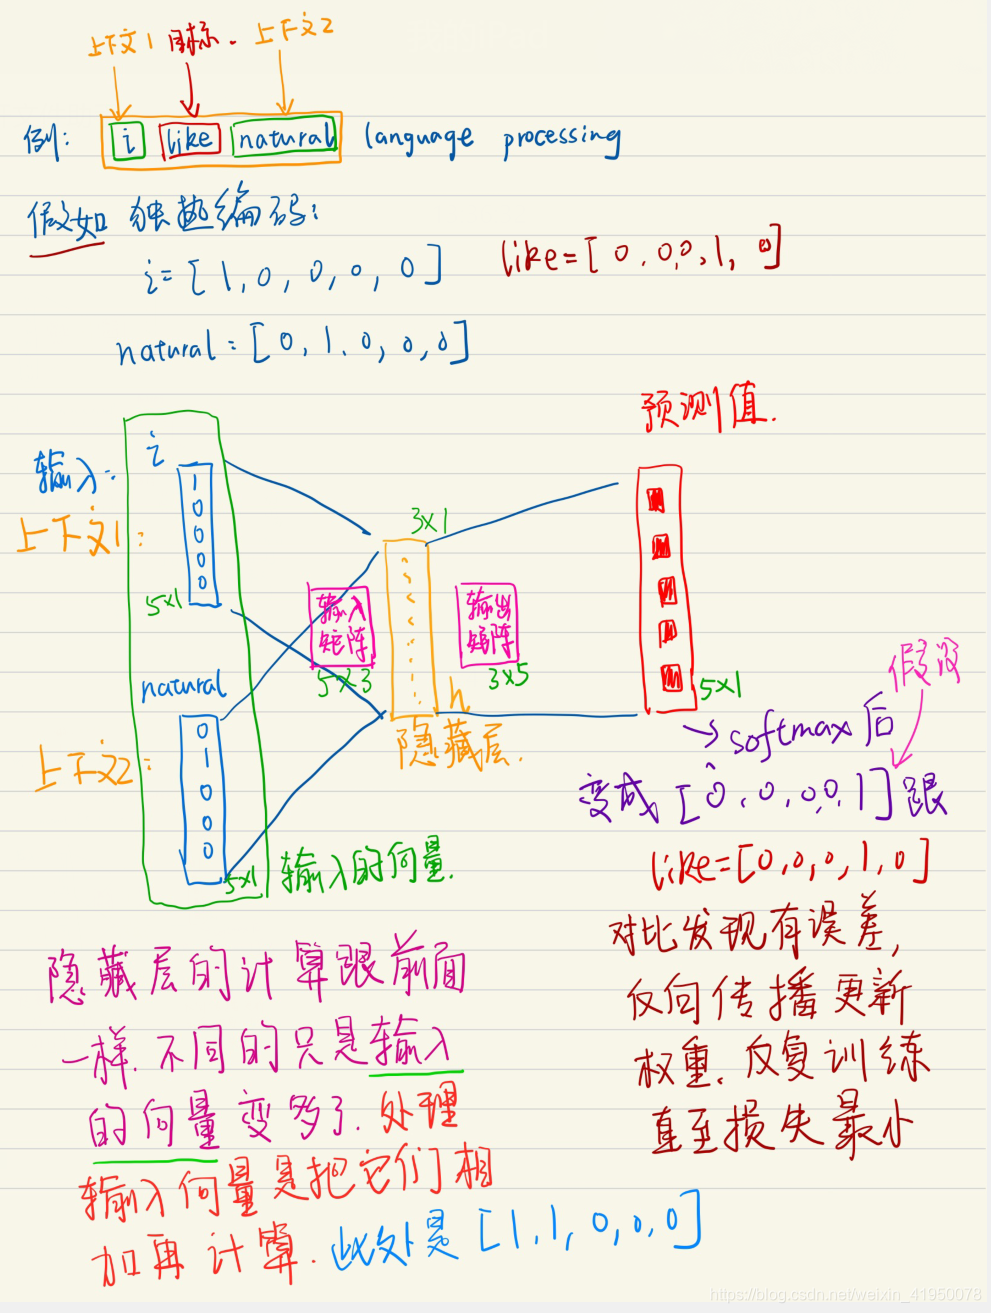 上下文1 目标. 上下文2
例: i like natural language processing
假如 独热编码:
i=[1,0,0,0,0] like=[0.0,0,1,0]
natural=[0,1.0,0,0]
预测值.
输入:
i
1
0
0
0
0
上下文1:
5×1
3×1
输入
矩阵
5×3
输出
矩阵
3×5
h
隐藏层.
natural
上下文2:
0
1
0
0
0
5×1
输入的向量.
5×1
假设
→softmax后
变成[0.0.0,0,1]跟
like=[0,0,0,1,0]
对比发现有误差,
反向传播更新
权重.反复训练
直至损失最小
隐藏层的计算跟前面
一样.不同的只是输入
的向量变多了.处理
输入向量是把它们相
加再计算.此处是[1,1,0,0,0]
https://blog.csdn.net/weixin_41950078